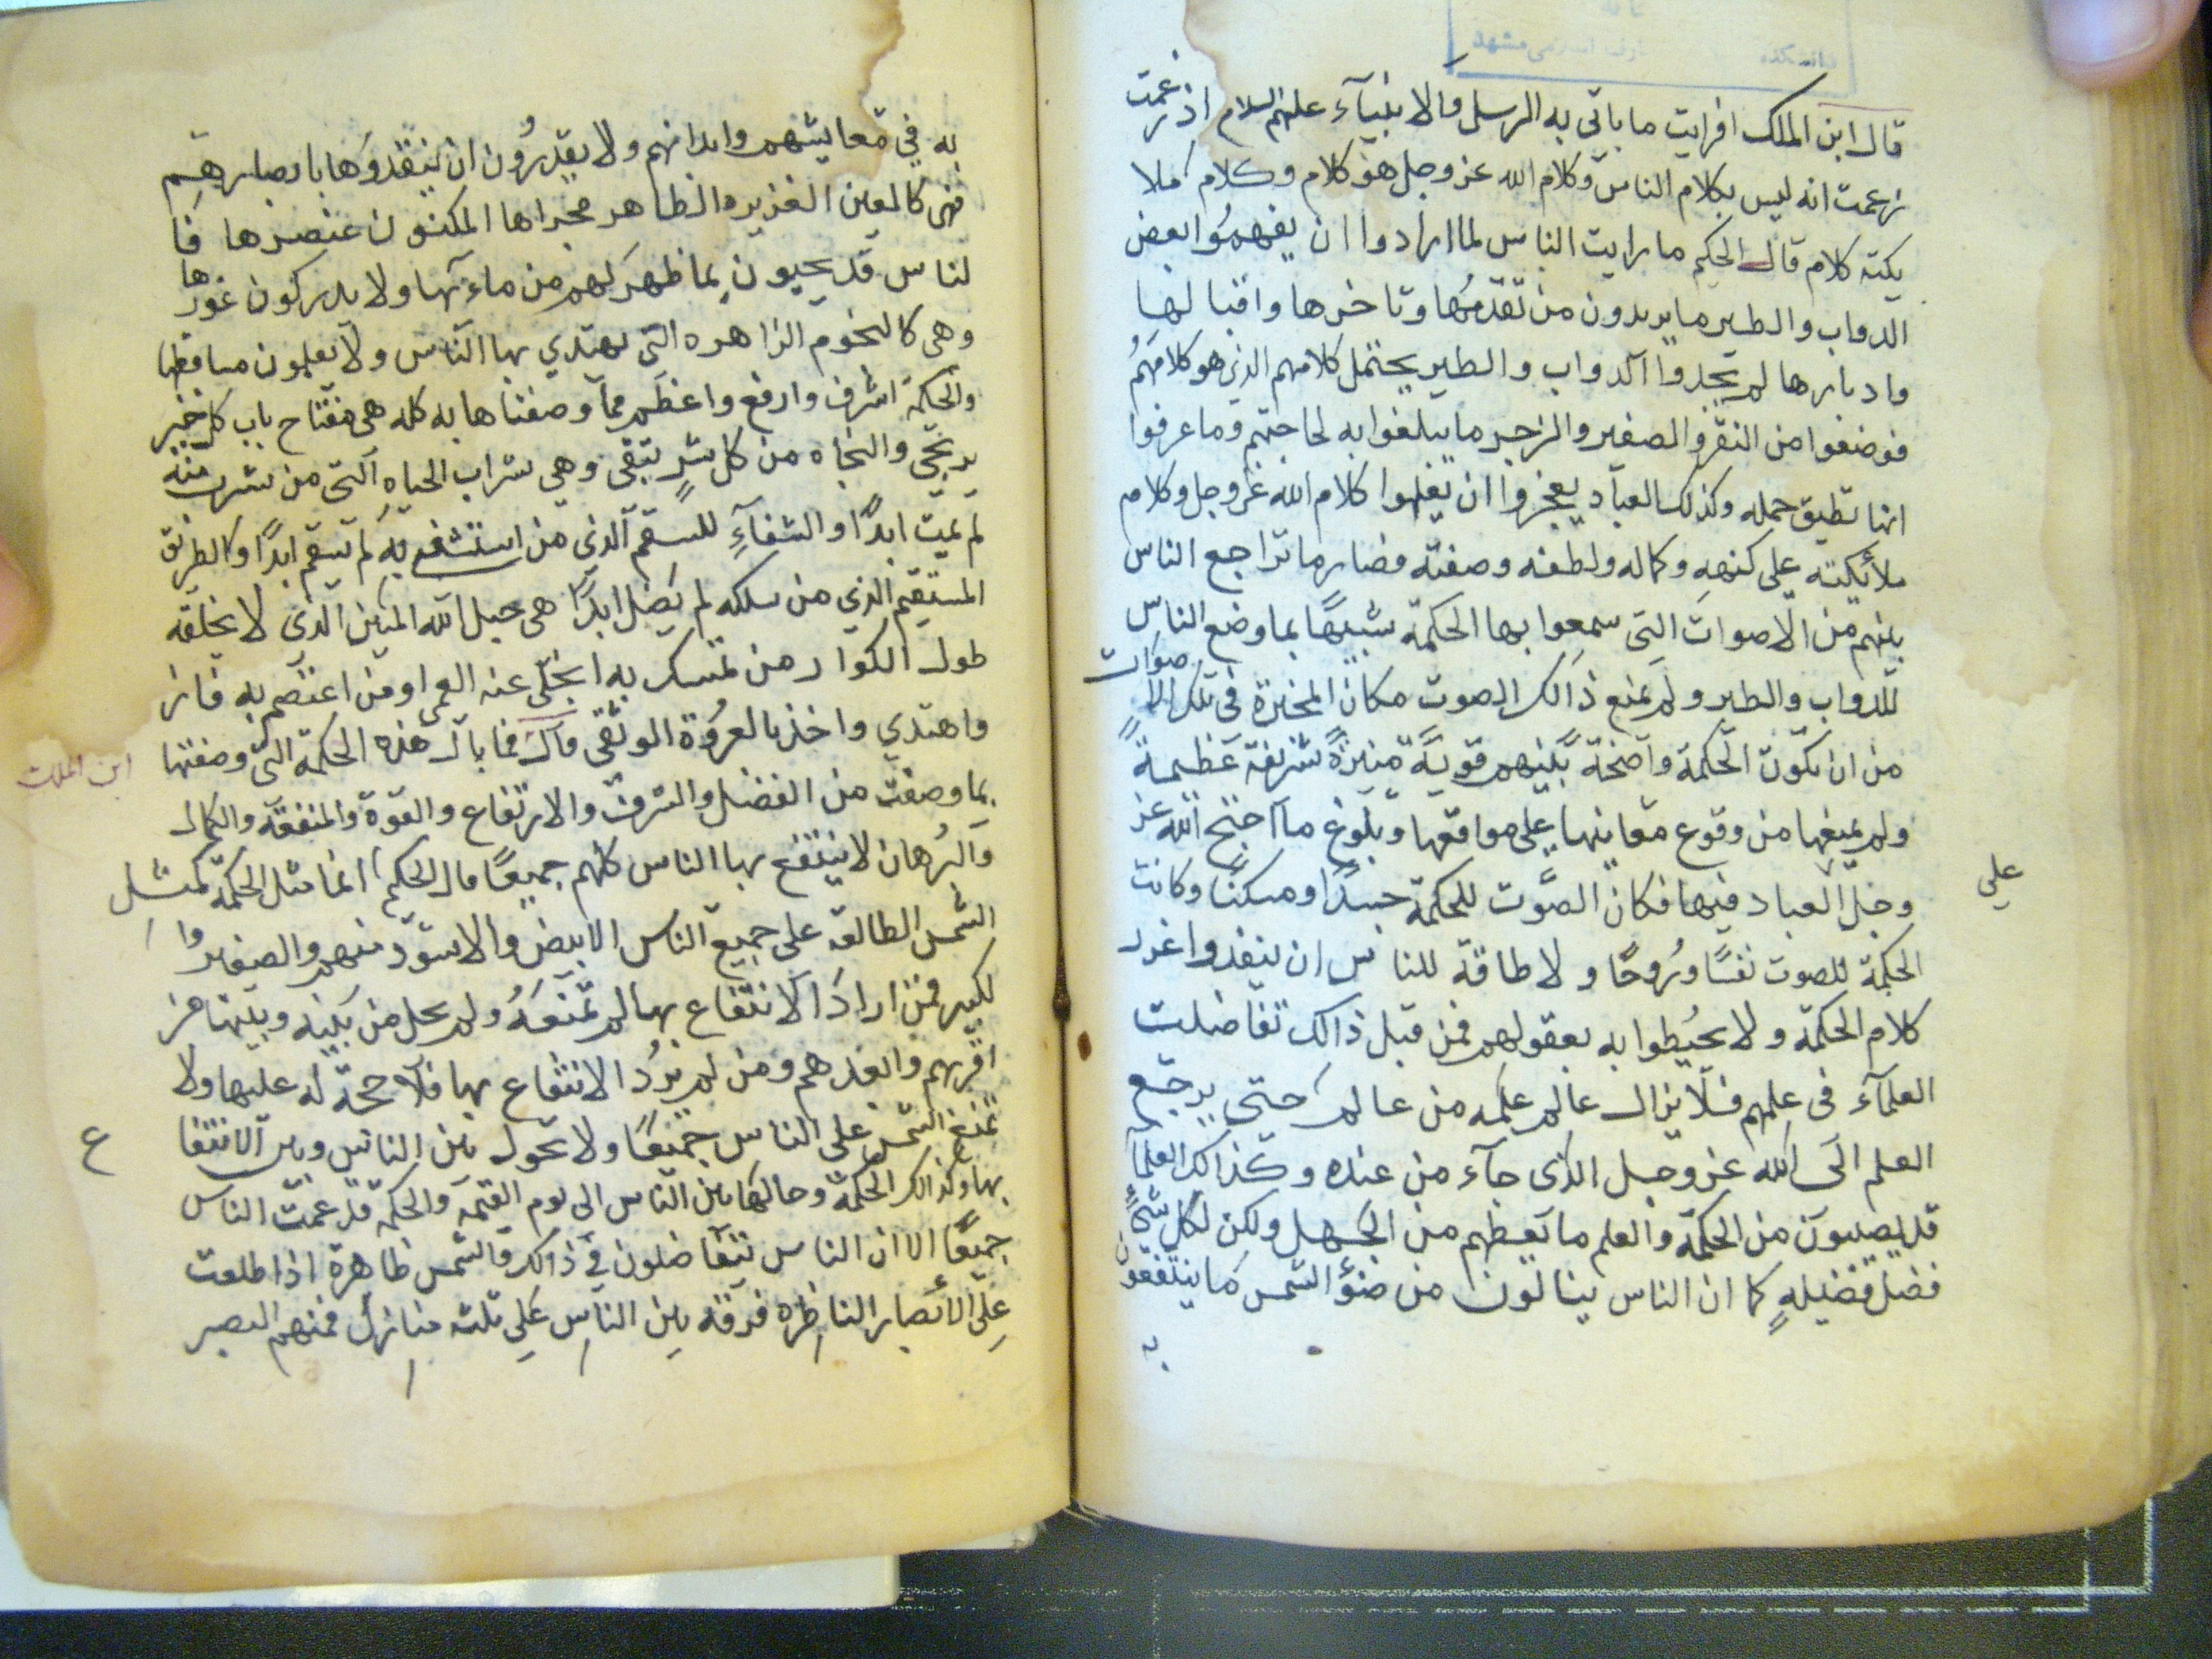 قال ابن الملك افرايت ما ياتي به الرسل والانبيآء عليهم السلام اذ زعمت
زعمت انه ليس بكلام الناس وكلام الله عز وجل هو كلام وكلام ملا
يكته كلام قال الحكيم ما رايت الناس لما ارادوا ان يفهموا بعض
الدواب والطير ما يريدون من تقدمها وتاخرها واقبالها
وادبارها لم يجدوا الدواب والطير يحتمل كلامهم الذي هو كلامهم
فوضعوا من النقر والصفير والزجر ما يبلغوا به لحاجتهم وما عرفوا
انها تطيق حمله وكذلك العباد يعجزوا ان يعلموا كلام الله عز وجل وكلام
ملائكته على كنهه وكماله ولطفه وصفته فصار ما تراجع الناس
بينهم من الاصوات التي سمعوا بها الحكمة شبيها بما وضع الناس
للدواب والطير ولم يمنع ذالك الصوت مكان المخبرة في تلك الا
صوات
من ان تكون الحكمة واضحة بينهم قوية منيرة شريفة عظيمة
ولم يمنعها من وقوع معانيها على مواقعها وبلوغ ما احتج الله عز
وجل العباد فيها فكان الصوت للحكمة جسدا ومسكنا وكانت
على
الحكمة للصوت نفسا وروحا ولا طاقة للناس ان ينفذوا غور
كلام الحكمة ولا يحيطوا به بعقولهم فمن قبل ذالك تفاضلت
العلمآء في علمهم فلا يزال عالم علمه من عالم حتى يرجع
العلم الى الله عز وجل الذي جآء من عنده وكذالك العلما
قد يصيبون من الحكمة والعلم ما يعظهم من الجهل ولكن لكل شئ
فضل فضيله كما ان الناس ينالون من ضوء الشمس ما ينتفعون
به
به في معايشهم وابدانهم ولا يقدرون ان ينفذوها بابصارهم
فهي كالمعين الغزيره الظاهر مجراها المكنون عنصرها فا
لناس قد يحيون بما ظهر لهم من مآئها ولا يدركون غورها
وهي كالنجوم الزاهره التي يهتدي بها الناس ولا يعلمون مساقطها
والحكمة اشرف وارفع واعظم مما وصفناها به كله هي مفتاح باب كل خير
يرتجي والنجاه من كل شر يتقى وهي شراب الحياه التي من شرب منه
لم يميت ابدا والشفآء للسقم الذي من استشفى به لم يسقم ابدا والطريق
المستقيم الذي من سلكه لم يضل ابدا هي حبل الله المتين الذي لا يخلقه
طول الكوار من تمسك به انجلى عنه العمى ومن اعتصم به فاز
واهتدي واخذ بالعروة الوثقى قال فما بال هذه الحكمة التي وصفتها
ابن الملك
بما وصفت من الفضل والشرف والارتفاع والقوة والمنفعة والكمال
والبرهان لا ينتفع بها الناس كلهم جميعا قال الحكيم انما مثل الحكمة كمثل
الشمس الطالعة على جميع الناس الابيض والاسود منهم والصغير وا
لكبير فمن اراد الانتفاع بها لم تمنعه ولم يحل من بينه وبينها من
اقربهم وابعدهم ومن لم يرد الانتفاع بها فلا حجة له عليها ولا
تمنع الشمس على الناس جميعا ولا تحول بين الناس وبين الانتفا
ع
بها وكذالك الحكمة وحالها بين الناس الى يوم القيمة والحكمة قد عمت الناس
جميعا الا ان الناس يتفاضلون في ذالك والشمس ظاهرة اذا طلعت
على الابصار الناظره فرقه بين الناس على ثلثه منازل فمنهم البصر